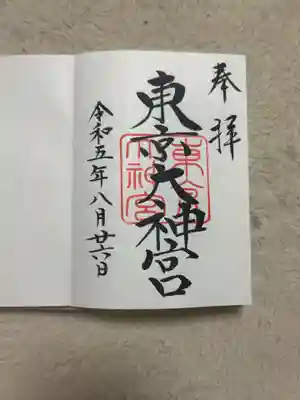 奉拝
東京大神宮
東京大神宮
令和五年八月廿六日